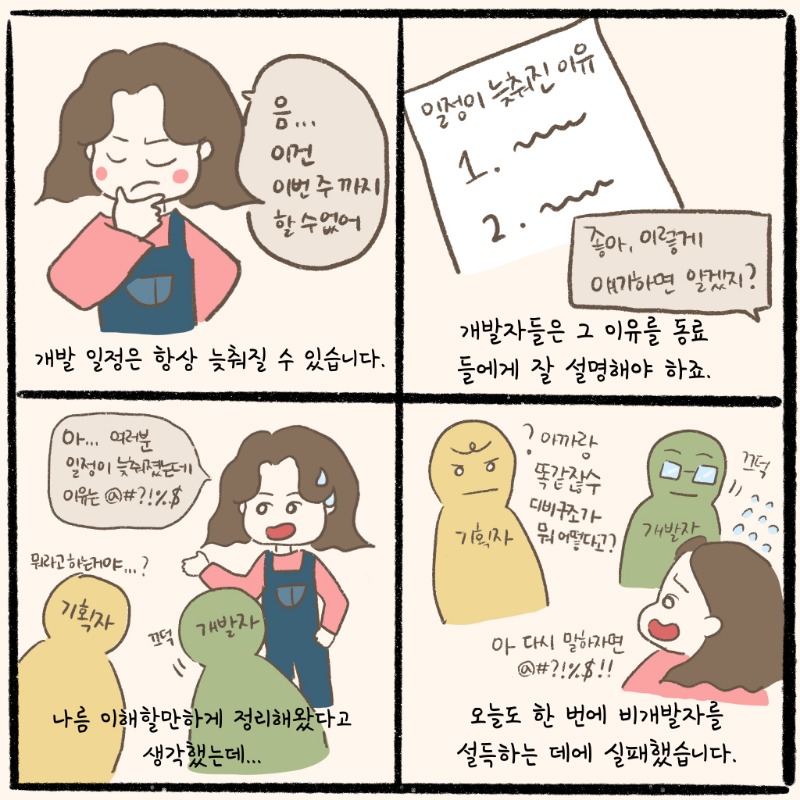 음...
이건
이번 주 까지
할 수 없어
개발 일정은 항상 늦춰질 수 있습니다.
일정이 늦춰진 이유
1.
2.
좋아, 이렇게
얘기하면 알겠지?
개발자들은 그 이유를 동료
들에게 잘 설명해야 하죠.
아... 여러분
일정이 늦춰졌는데
이유는 @#?!%$
뭐라고 하는거야...?
기획자
끄덕
개발자
나름 이해할만하게 정리해왔다고
생각했는데...
? 아까랑
똑같잖수
디비구조가
뭐 어떻다고?
기획자
끄덕
개발자
아 다시 말하자면
@#?!%$!!
오늘도 한 번에 비개발자를
설득하는 데에 실패했습니다.